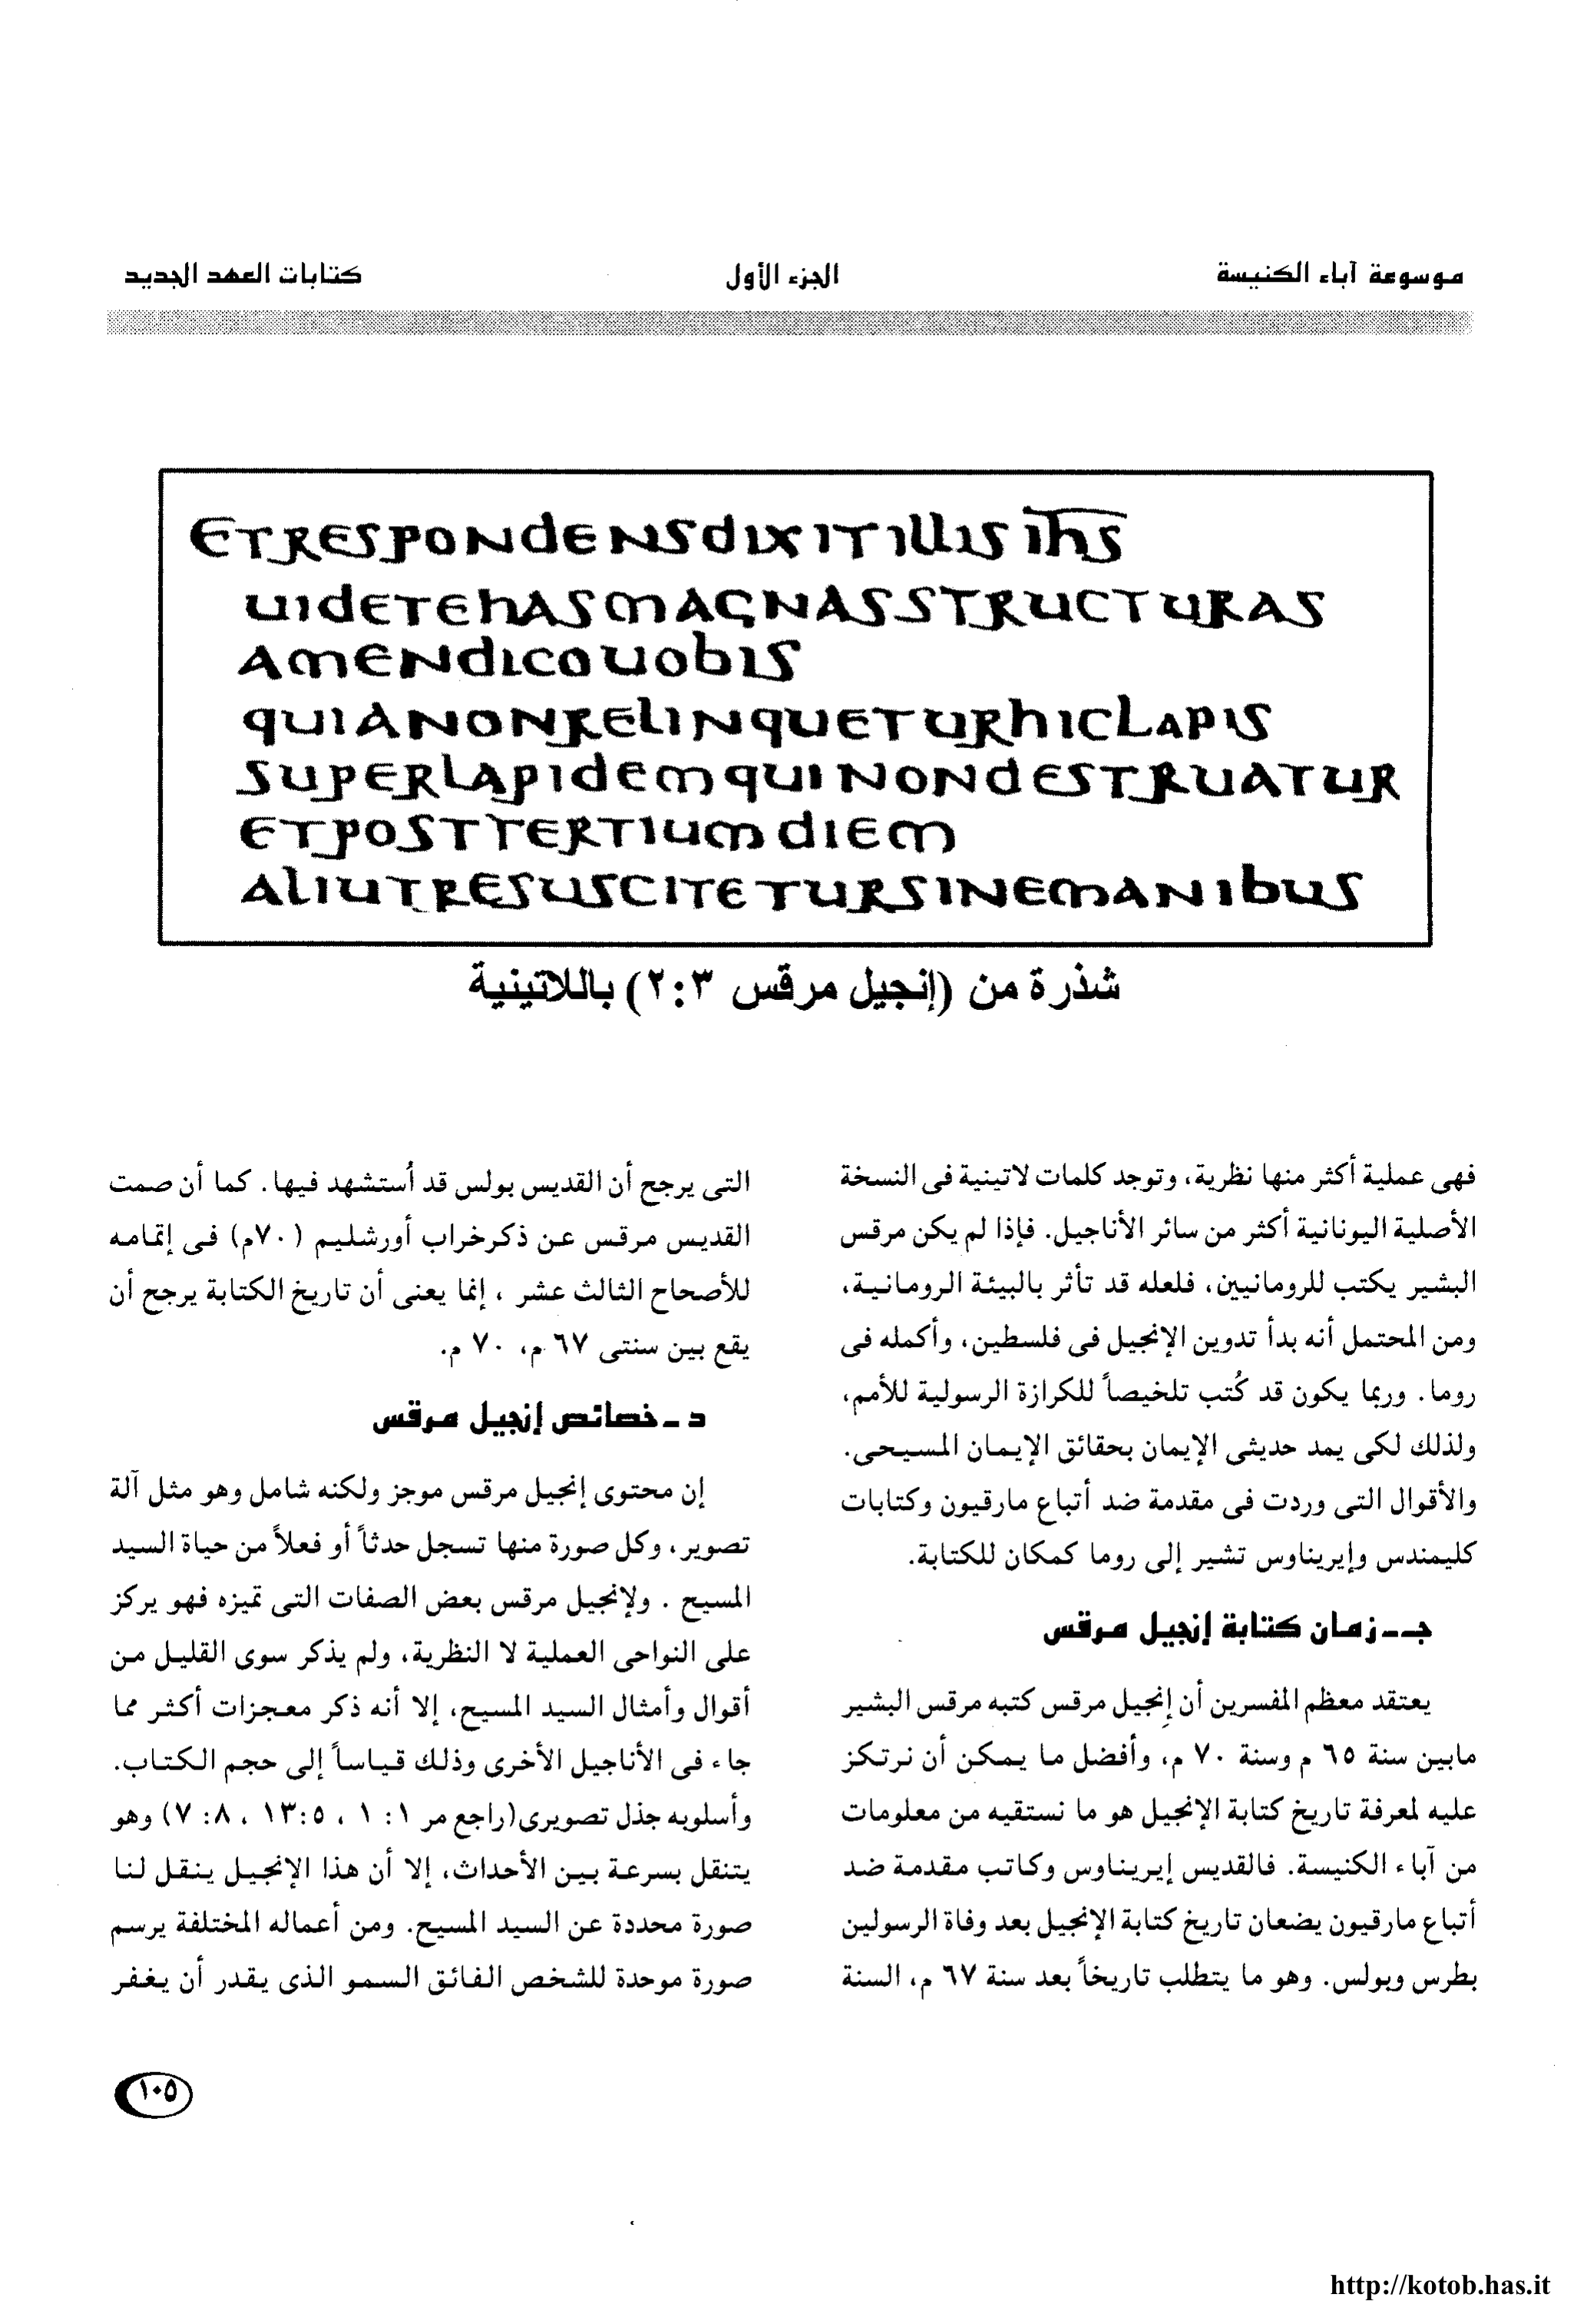 موسوعة آباء الكنيسة الجزء الأول كتابات العهد الجديد
ETRESPONdENSdIXITILLISIhS
UIdETEhASMAGNASSTRUCTURAS
AMENdICOUObIS
qUIANONRELINqUETURhICLAPIS
SUPERLAPIdEMqUINONdESTRUATUR
ETPOSTTERTIUMdIEM
ALIUTRESUSCITETURSINEMANIbUS
شذرة من (إنجيل مرقس ٢:٣) باللاتينية
فهى عملية أكثر منها نظرية، وتوجد كلمات لاتينية فى النسخة
الأصلية اليونانية أكثر من سائر الأناجيل. فإذا لم يكن مرقس
البشير يكتب للرومانيين، فلعله قد تأثر بالبيئة الرومانية،
ومن المحتمل أنه بدأ تدوين الإنجيل فى فلسطين، وأكمله فى
روما. وربما يكون قد كُتب تلخيصاً للكرازة الرسولية للأمم،
ولذلك لكى يمد حديثى الإيمان بحقائق الإيمان المسيحى.
والأقوال التى وردت فى مقدمة ضد أتباع مارقيون وكتابات
كليمندس وإيريناوس تشير إلى روما كمكان للكتابة.
جـ - زمان كتابة إنجيل مرقس
يعتقد معظم المفسرين أن إنجيل مرقس كتبه مرقس البشير
مابين سنة ٦٥ م وسنة ٧٠ م، وأفضل ما يمكن أن نرتكز
عليه لمعرفة تاريخ كتابة الإنجيل هو ما نستقيه من معلومات
من آباء الكنيسة. فالقديس إيريناوس وكاتب مقدمة ضد
أتباع مارقيون يضعان تاريخ كتابة الإنجيل بعد وفاة الرسولين
بطرس وبولس. وهو ما يتطلب تاريخاً بعد سنة ٦٧ م، السنة
التى يرجح أن القديس بولس قد أستشهد فيها. كما أن صمت
القديس مرقس عن ذكرخراب أورشليم (٧٠م) فى إتمامه
للأصحاح الثالث عشر ، إنما يعنى أن تاريخ الكتابة يرجح أن
يقع بين سنتى ٦٧ م، ٧٠ م.
د - خصائص إنجيل مرقس
إن محتوى إنجيل مرقس موجز ولكنه شامل وهو مثل آلة
تصوير، وكل صورة منها تسجل حدثاً أو فعلاً من حياة السيد
المسيح . ولإنجيل مرقس بعض الصفات التى تميزه فهو يركز
على النواحى العملية لا النظرية، ولم يذكر سوى القليل من
أقوال وأمثال السيد المسيح، إلا أنه ذكر معجزات أكثر مما
جاء فى الأناجيل الأخرى وذلك قياساً إلى حجم الكتاب.
وأسلوبه جذل تصويرى(راجع مر ١: ١ ، ١٣:٥ ، ٨: ٧) وهو
يتنقل بسرعة بين الأحداث، إلا أن هذا الإنجيل ينقل لنا
صورة محددة عن السيد المسيح. ومن أعماله المختلفة يرسم
صورة موحدة للشخص الفائق السمو الذى يقدر أن يغفر
١٠٥
http://kotob.has.it